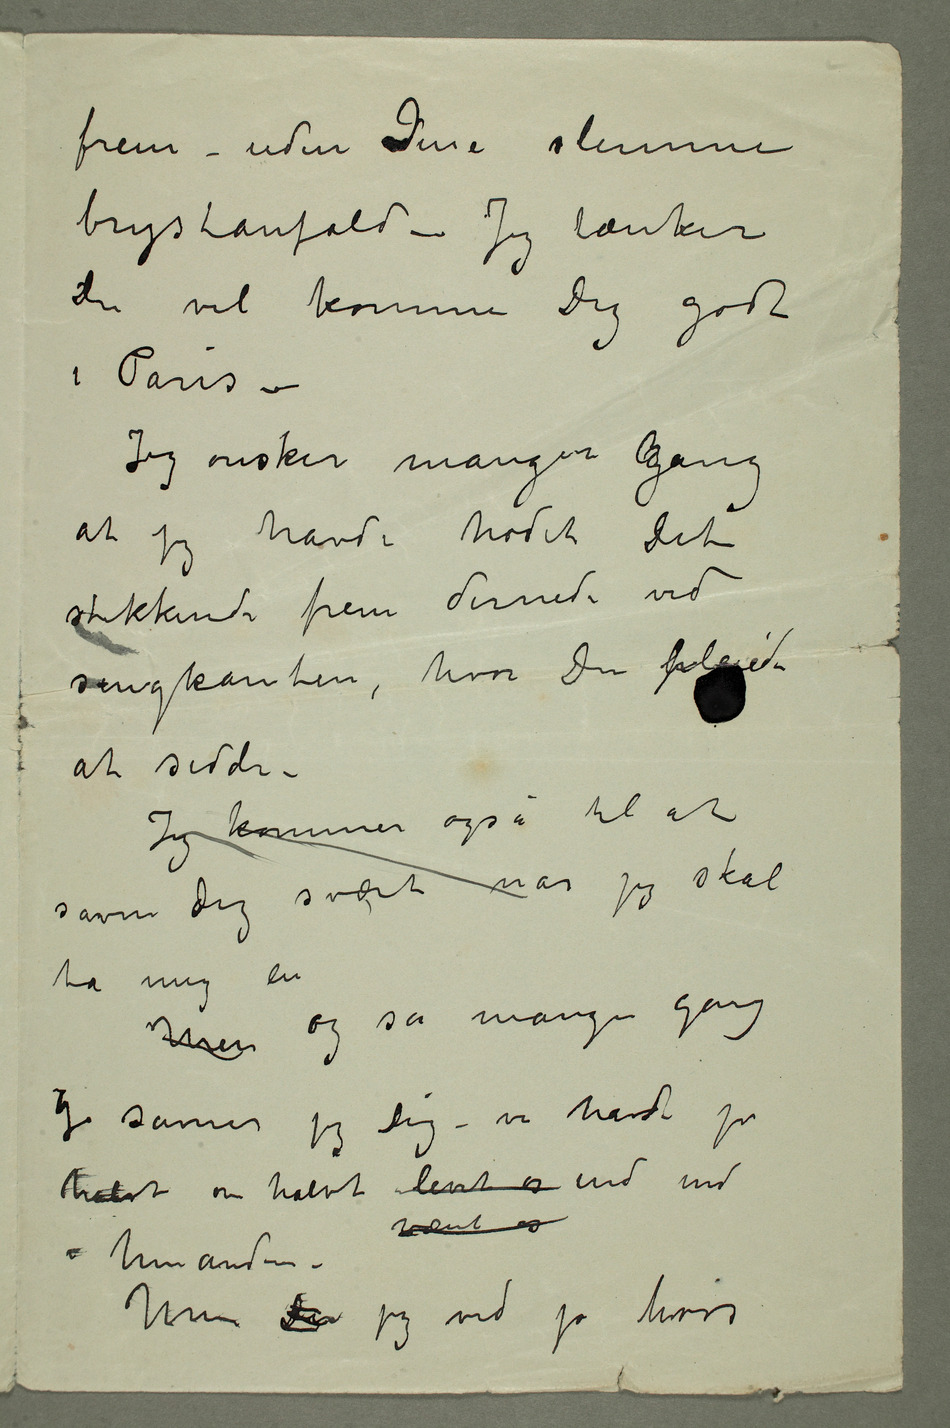 frem – uden Dine slemme
brystanfald – Jeg tænker
Du vil komme Dig godt
i Paris –
Jeg ønsker mangen Gang
at jeg havde hodet Dit
stikkende frem dernede ved
sengkanten, hvor Du pleiede
at sidde –
Jeg kommer også til at
savne Dig svært når jeg skal
ta mig en
Men og så mangen gang
Ja savner jeg Dig – vi havde jo
halvt om halvt levet os ind ind
vænt os
i hinanden –
Men Du jeg ved jo hvor